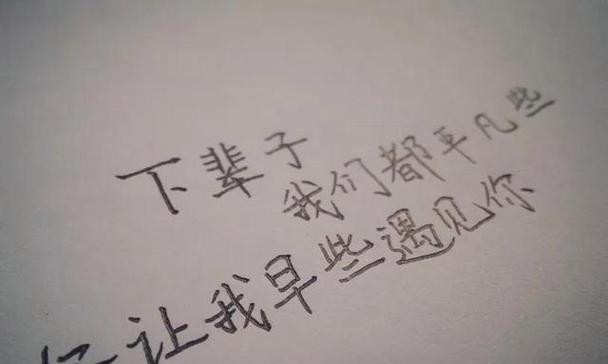 下辈子
我们都平凡些
让我早些遇见你